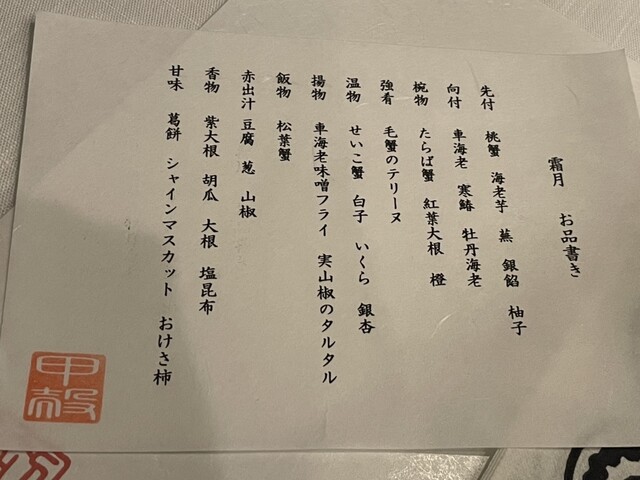 霜月 お品書き
先付 桃蟹 海老芋 蕪 銀餡 柚子
向付 車海老 寒鰆 牡丹海老
椀物 たらば蟹 紅葉大根 橙
強肴 毛蟹のテリーヌ
温物 せいこ蟹 白子 いくら 銀杏
揚物 車海老味噌フライ 実山椒のタルタル
飯物 松葉蟹
赤出汁 豆腐 葱 山椒
香物 紫大根 胡瓜 大根 塩昆布
甘味 葛餅 シャインマスカット おけさ柿
甲殻